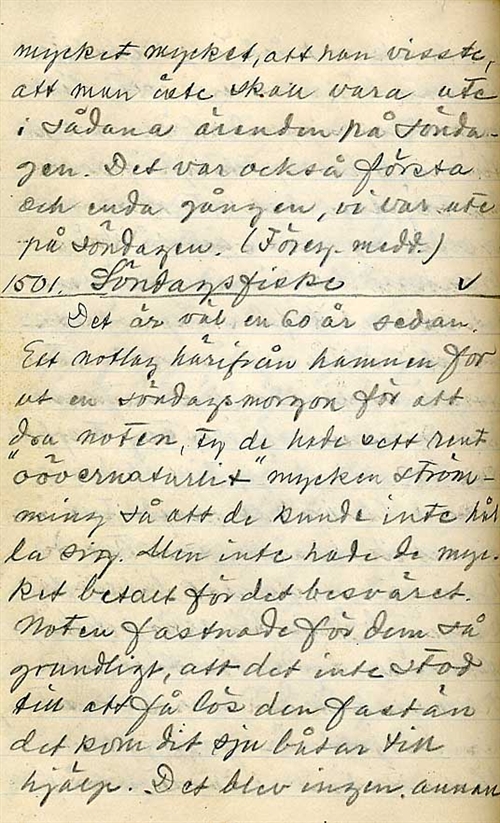 mycket mycket, att han visste,
att man inte skall vara ute
i sådana ärenden på sönda-
gen. Det var också första
och enda gången, vi var ute
på söndagen. (Föreg. medd.)
1501. Söndagsfiske v
Det är väl en 60 år sedan.
Ett notlag härifrån hamnen for
ut en söndagsmorgon för att
dra noten, ty de hade sett rent
"oövernaturlit" mycken ström-
ming så att de kunde inte hål
la sig. Men inte hade de myc-
ket betalt för det besväret.
Noten fastnade för dem så
grundligt, att det inte stod
till att få lös den fastän
det kom dit sju båtar till
hjälp. Det blev ingen annan